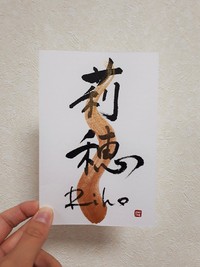 莉
穂
Riho